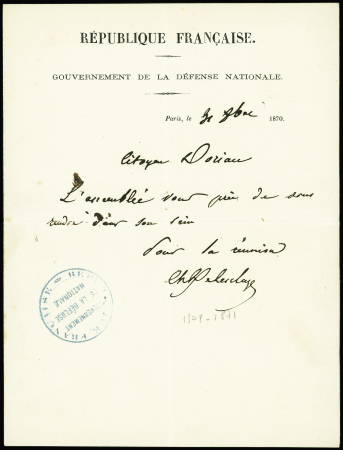 RÉPUBLIQUE FRANÇAISE.
GOUVERNEMENT DE LA DÉFENSE NATIONALE.
Paris, le 31 8bre 1870.
Citoyen Dorian
L'assemblée vous prie de vous
rendre dans son sein
Pour la réunion
Ch Delescluze
1809-1871
RÉPUBLIQUE FRANÇAISE
GOUVERNEMENT
DE LA DÉFENSE
NATIONALE